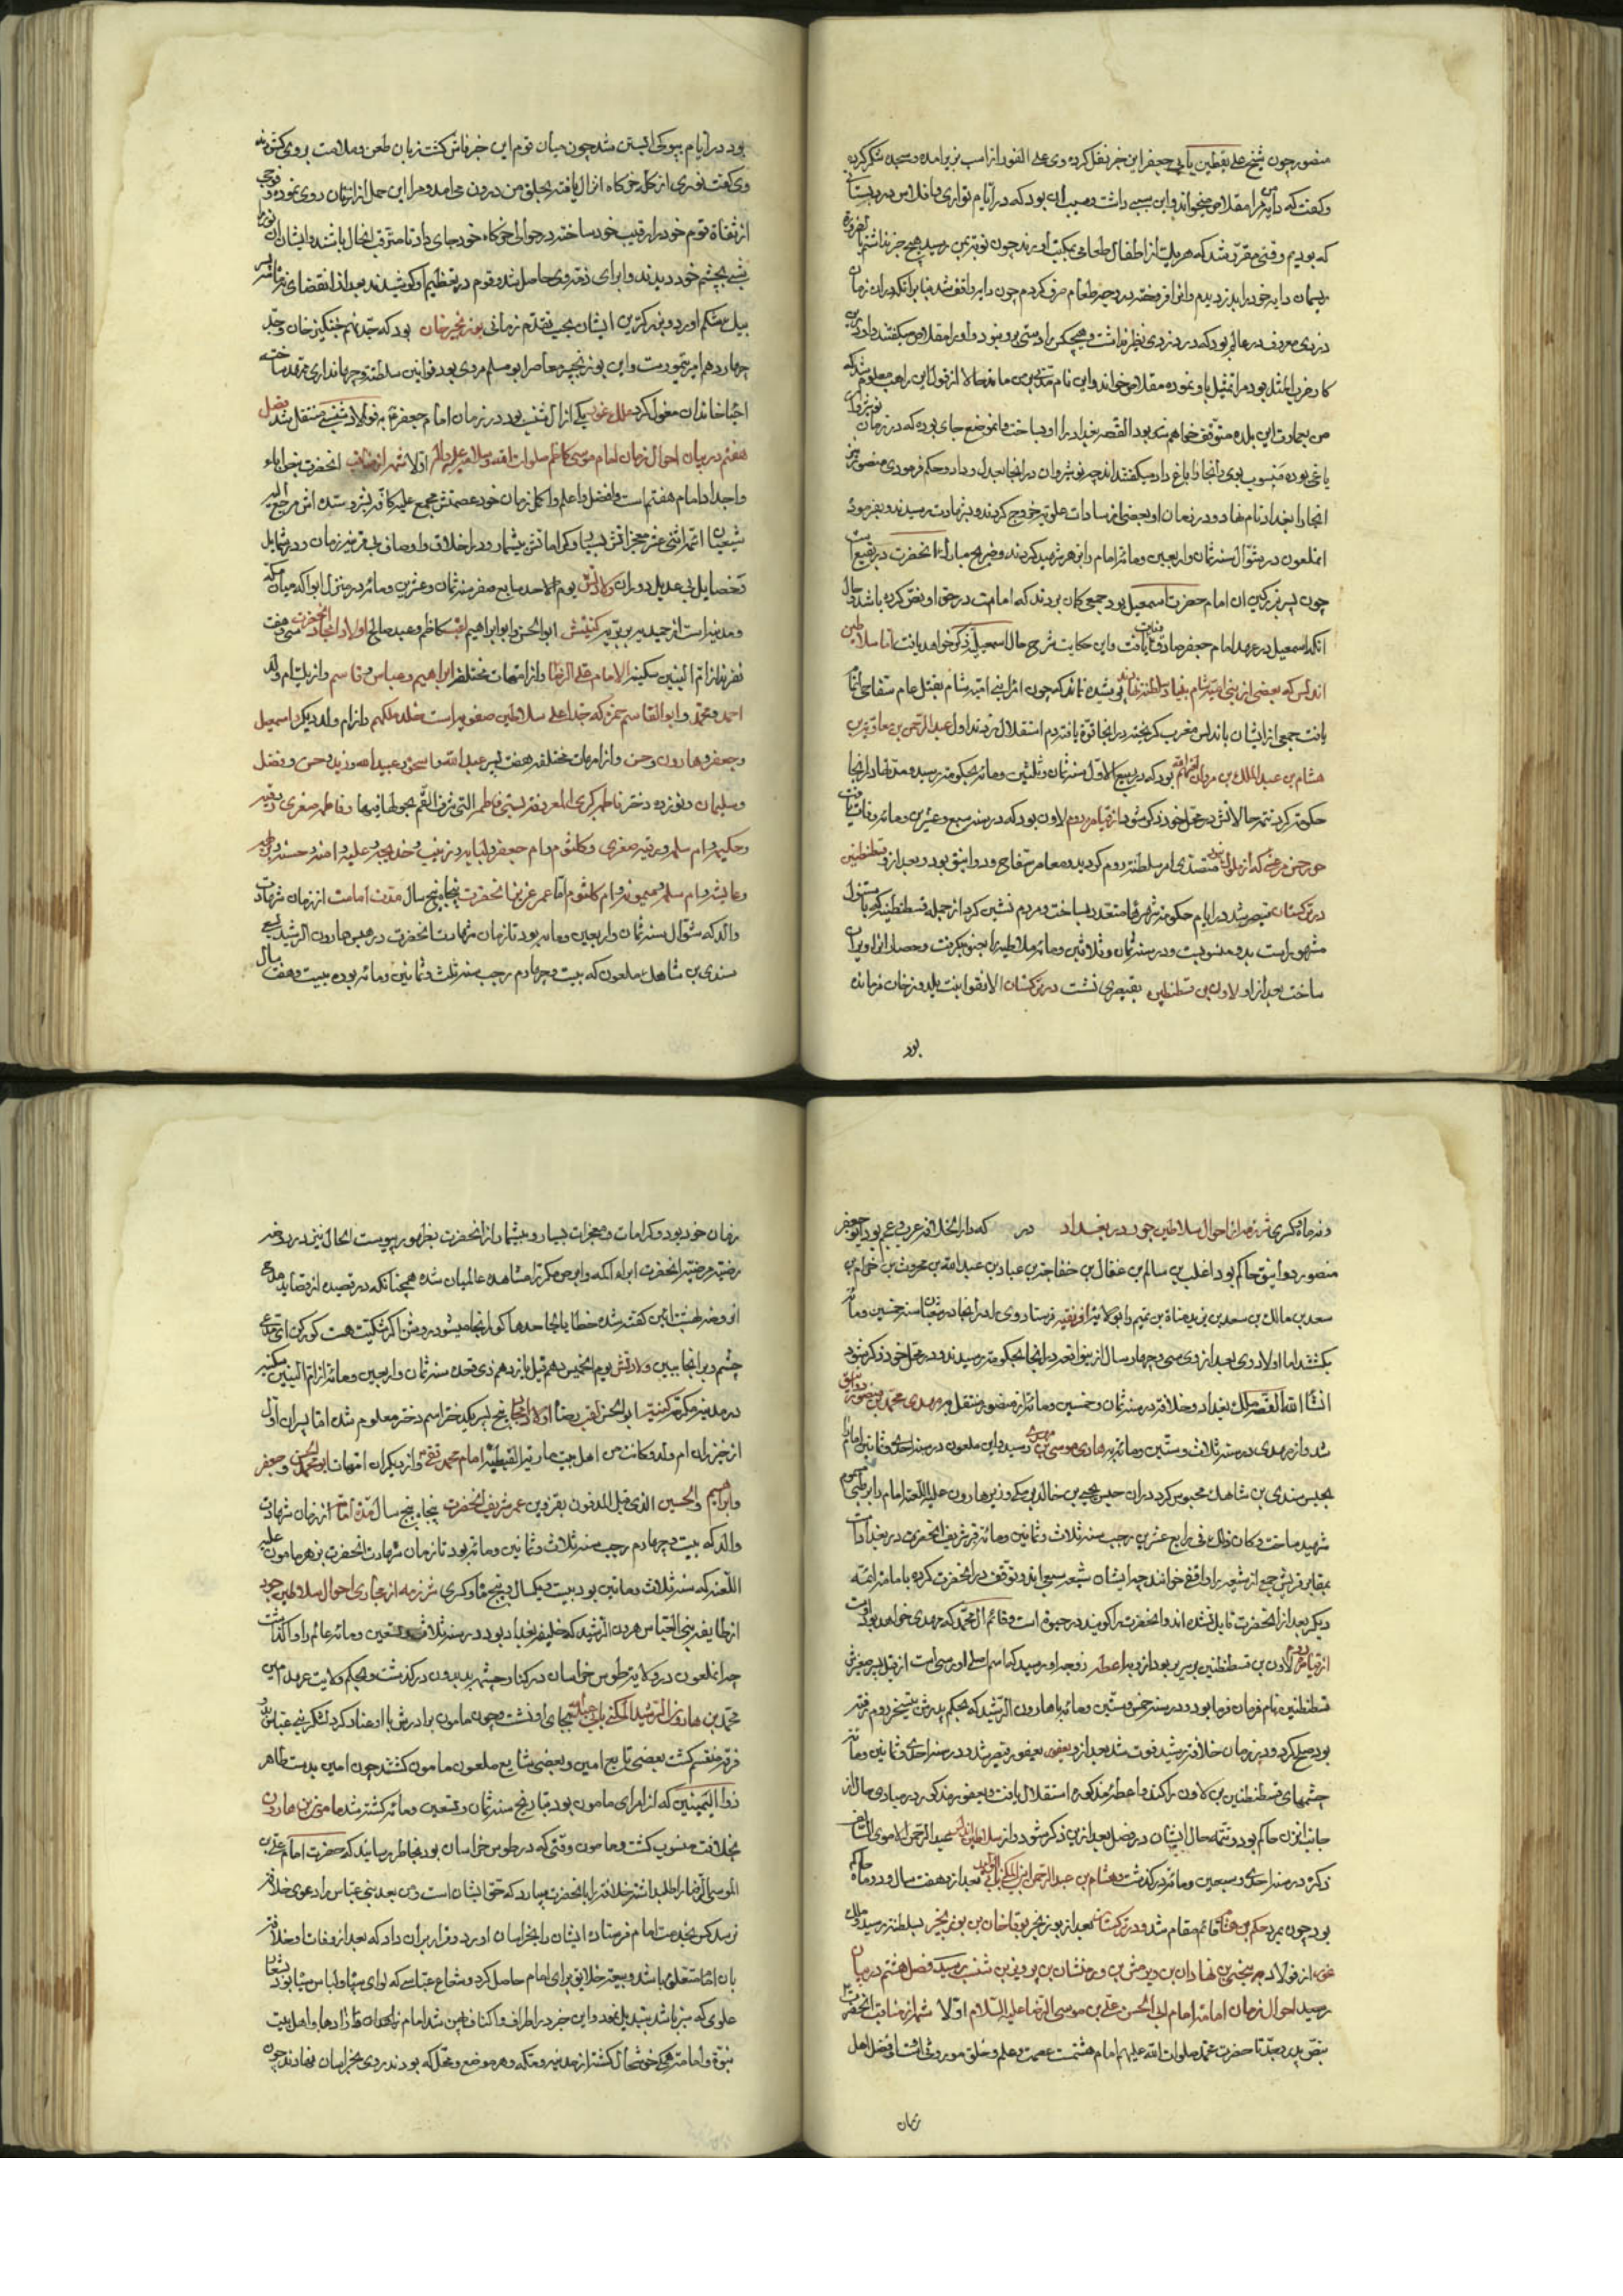 منصور چون شیخ علی یقطین بابی جعفر این خبر نقل کرد وی علی الفور از اسب بزیر آمده و سجده شکر کرد
و گفت که دایه مرا مقلاص میخواند و این سببی داشت و سبب آن بود که در ایام تواری با فلاس در
که بودیم وقتی مقرر شد که هر یک از اطفال طعامی بمکتب آورند چون نوبت بمن رسید هیچ چیز نداشتم بالضرورة
ریسمان دایه خود را بدزدیدم و انرا فروخته در وجه طعام صرف کردم چون دایه واقف شد بنابر آنکه در آن زمان
دزدی معروف در عالم بود که در دزدی نظیر نداشت و هیچکس را دستی برو نبود و او را مقلاص میگفتند و او
کار ضرب المثل بود مرا تمثیل باو نموده مقلاص خواند و این نام مدتی بر من ماند حالا از قول این راهب معلوم شد که
من بعمارت این بلده متوفق خواهم شد بود القصه بغداد را او بساخت و انموضع جای بوده که در زمان نوشیروان
باغی بوده منسوب بوی و انجا را باغ داد میگفتند چه نوشیروان در انجا بعدل و داد و حکم فرمودی منصور نیز
انجا را بغداد نام نهاد و در زمان او بعضی از سادات علویه خروج کردند و بشهادت رسیدند و بفرمود
انملعون در شوال سنه ثمان و اربعین و مائه امام را بزهر شهید کردند و ضریح مبارک انحضرت در بقیع است
چون پسر بزرگین ان امام حضرت اسمعیل بود جمعی کان بردند که امامت در حق او نص کرده باشد و حال
انکه اسمعیل در عهد امام جعفر صادق وفات یافت و این حکایت شرح حال اسمعیلیه ذکر خواهد یافت اما سلاطین
اندلس که بعضی از بنی امیه شام بنیاد سلطنت نهادند پوشیده نماند که چون امر بنی امیه شام بقتل عام سفاحی انجام
یافت جمعی از ایشان باندلس مغرب گریخته در انجا قوة یافته دم استقلال زدند اول عبدالرحمن بن معاویة بن
هشام بن عبدالملک بن مروان بود که در ربیع الاول سنه ثمان و ثلثین و مائه بحکومت رسید و مدتها در انجا
حکومت کرد تتمه حالاتش در محل خود ذکر شود از قیاصره روم لاون بود که در سنه سبع و عشرین و مائه وفات یافت
متصدی امر سلطنه روم کردید و معاصر سفاح و دوانیقی بود و بعد از و قسطنطین
در ترکستان قیصر شد در ایام حکومت شهرها متعدد بساخت و مردم نشین کرد از جمله قسطنطنیه که باستنبول
مشهور است بدو منسوبست و در سنه ثمان و ثلاثین و مائه ملاطیه را بجنو بگرفت و حصار انرا ویران
ساخت بعد از او لاون بن قسطنطین بقیصری نشست در ترکستان الانقوا بنت یلدوز خان فرمانده
بود
بود در ایام بیوکی ابستن شد چون میان قوم این خبر فاش کشت زبان طعن و ملامت بروی کشودند
وی کفت نوری از کل خرکاه انزال یافته بحلق من درون می آمد و مرا این حمل از ان روی نموده و جمعی
از ثقاة قوم خود را رقیب خود ساخته در حوالی خرکاه خود جای داد تا مترقب انحال باشند و ایشان ان نور را
شبی بچشم خود دیدند و ابرای ذمه وی حاصل شد و قوم در تعظیم او کوشیدند بعد از انقضای نه ماه سه پسر
بیک شکم اورد و بزرکترین ایشان بحسب تقدم زمانی بوزنجر خان بود که جد نهم جنکیز خان و جد
چهاردهم امیر تیمور است و این بوزنجر معاصر ابو مسلم مروی بود قوانین سلطنت و جهانداری ممهد ساخته
احیا خاندان مغول کرد ملک غور یکی از ال شنسب بود در زمان امام جعفر به فولاد شنسبی منتقل شد فصل
هفتم در بیان احوال زمان امام موسی کاظم صلوات الله و سلامه علیه و اله اولا شهر از مناقب انحضرت بنص اباء
و اجداد امام هفتم است و افضل و اعلم و اکمل زمان خود عصمتش مجمع علیه کافه بشر و سده اش مرجع
شیعیان ائمه اثنی عشر معجزاتش بسیار و کراماتش بیشمار و در اخلاق و اوصاف بی قرینه زمان و در شمایل
و خصایل بی عدیل دوران ولادتش یوم الاحد سابع صفر سنه ثمان و عشرین و مائه در منزل ابوا که میان مکه
و مدینه است از حمیده بربریه کنیتش ابوالحسن و ابو ابراهیم لقبش کاظم و عبد صالح اولاد امجاد انحضرت سی و هفت
نفرند از ام البنین سکینه الامام علی الرضا و از امهات مختلفه ابراهیم و عباس و قاسم و از یک ام ولد
احمد و محمد و ابو القاسم حمزه که جد اعلی سلاطین صفویه است خلد ملکهم و از ام ولد دیکر اسمعیل
و جعفر و هارون و حسن و از امهات مختلفه هفت پسر عبدالله و اسحق و عبیدالله و زید و حسن و فضل
و سلیمان و نوزده دختر فاطمه کبری المعروفه بستی فاطمه التی شرف القم بحولها فیها و فاطمه صغری و رقیه
و حکیمه و ام سلمه و رقیه صغری و کلثوم و ام جعفر و لبابه و زینب و خدیجه و علیه و امنه و حسنه و بریهه
و عایشه و ام سلمه و میمونه و ام کلثوم اما عمر عزیز انحضرت پنجاه و پنج سال مدت امامت از زمان شهادت
والد که شوال سنه ثمان و اربعین و مائه بود تا زمان شهادت انحضرت در حبس هارون الرشید بسعی
سندی بن شاهک ملعون که بیست و چهارم رجب سنه ثلث و ثمانین و مائه بوده بیست و هفت سال
و نه ماه کسری شرذمه از احوال سلاطین جور در بغداد در که دار الخلافه عرب و عجم بود ابو جعفر
منصور دوانیق حاکم بود اغلب بن سالم بن عقال بن خفاجة بن عباد بن عبدالله بن محرث بن
سعد بن مالک بن سعد بن زید مناة بن تمیم را بولایت افریقیه فرستاد وی را در انجا در شعبان سنه خمسین و مائه
بکشتند اما اولاد وی بعد از وی سی و چهار سال از بنو اغلب در انجا بحکومت رسیدند و در محل خود ذکر شود
انشا الله القصه ملک بغداد و خلافت در سنه ثمان و خمسین و مائه از منصور منتقل بر مهدی محمد بن منصور دوانیق
شد و از مهدی در سنه ثلاث و ستین و مائه به هادی موسی بن مهدی رسید و این ملعون در سنه احدی و ثمانین امام را
بحبس سندی بن شاهک محبوس کرد در ان حبس یحیی بن خالد برمکی وزیر هارون علیه اللعنة امام را برطب مسموم
شهید ساخت و کان ذلک فی رابع عشرین رجب سنه ثلاث و ثمانین و مائه قبر شریف انحضرت در بغداد است
بمقابر قریش جمعی از شیعه را واقفی خوانند چه ایشان شیعه سبعی اند و توقف در انحضرت کرده بامامت ائمه
دیکر بعد از انحضرت قایل نشده اند و انحضرت را کویند در حیوة است و قائم ال محمد که مهدی خواهد بود اوست
از قیاصره لاون بن قسطنطنین بود از و به اعطه زوجه او رسید که اسم اصلی او مرسی است از قبل پسر صغیرش
قسطنطنین نام فرمان فرما بود و در سنه خمس و ستین و مائه با هارون الرشید که بحکم پدرش بتسخیر روم رفته
بود صلح کرد و در زمان خلافت رشید فوت شد بعد از و یعفور یعیفور قیصر شد و در سنه احدی و ثمانین و مائه
چشمهای قسطنطین بن لاون را کند و اعطه مذکوره استقلال یافت و یعفور مذکور در مبادی حال از
جانب ایزن حاکم بود و تتمه حال ایشان در فصل بعد ازین ذکر شود و از سلاطین اندلس عبدالرحمن الاموی السابق
ذکره در سنه احدی و سبعین و مائه درکذشت و هشام بن عبدالرحمن ابن المکنی بابی الولید بعد از و هفت سال و دو ماه حاکم
بود چون بمرد حکم بن هشام قائم مقام شد و در ترکستان بعد از بوزنجر بوقا خان بن بوزنجر بسلطنت رسید و ملک
غور از فولاد به بن نهادان بن ورمیش بن ورمنشان بن پرویز بن شنسب رسید فصل هشتم در بیان
رسید احوال زمان امامت امام ابی الحسن علی بن موسی الرضا علیه السلام اولا شمه از مناقب انحضرت
بنص پدر و جد تا حضرت محمد صلوات الله علیهم امام هشتمست عصمت و علم و خلق موروثی افت و افضل اهل
زمان
زمان خود بود و کرامات و معجزات بسیار و بیشمار از انحضرت بظهور پیوست الحال نیز در روضه
رضیه مرضیه انحضرت ابراء اکمه و ابرص مکررا مشاهده عالمیان شده همچنانکه در قصیده از قصاید مدح
ان روضه بهشت ائین کفته شده خطا یا بجا حدها کوار انجا میشود روشن اکر شکیت هست کور کن ای مدعی
چشم و برانجا ببین ولادتش یوم الخمیس دهم قیل یازدهم ذی قعده سنه ثمان و اربعین و مائه از ام البنین سکینه
در مدینه مکرمه کنیتش ابو الحسن لقبش رضا اولاد امجاد پنج پسر یک دختر اسم دختر معلوم نشد اما پسران اول
از خیزران ام ولد و کانت من اهل بیت ماریة القبطیه امام محمد تقی و از دیکران امهات ابو محمد الحسن و جعفر
و ابراهیم و الحسین الذی قیل المدفون بقزوین عمر شریف انحضرت پنجاه و پنج سال مدت امامت از زمان شهادت
والد که بیست و چهارم رجب سنه ثلاث و ثمانین و مائه بود تا زمان شهادت انحضرت بزهر مامون علیه
اللعنه که سنه ثلاث و ماتین بود بیست و یکسال و پنج ماه و کسری شرذمه از مجاری احوال سلاطین جور
از طایفه بنی العباس هرون الرشید که خلیفه بغداد بود در سنه ثلاث و تسعین و مائه عالم را وا کذاشت
چه انملعون در ولایت طوس خراسان در کنار چشمه بدرون درکذشت و بحکم ولایت عهد امین
محمد بن هارون الرشید المکنی بابی عبدالله بجای او نشست و چون مامون برادرش با او عناد کرد لشکر بنی عباس دو
فرقه منقسم کشت بعضی تابع امین و بعضی مشایع ملعون مامون کشتند چون امین بدست طاهر
ذوالیمینین که از امرای مامون بود بتاریخ سنه ثمان و تسعین و مائه کشته شد مامون بن هارون
بخلافت منسوب کشت و مامون وقتی که در طوس خراسان بود بخاطر رسانید که حضرت امام علی بن
الموسی الرضا را طلب داشته خلافت را بانحضرت سپارد که حق ایشان است و من بعد بنی عباس را دعوی خلافت
نرسد کس بخدمت امام فرستاده ایشان را بخراسان اورد و قرار بران داد که بعد از وفات او خلافت
بان امام متعلق باشد و بیعت خلایق برای امام حاصل کرد و شعار عباسی که لوای سیاه و لباس سیاه بود بشعار
علوی که سبز باشد تبدیل نمود و این خبر در اطراف و اکناف پهن شد امام زادها و اهل بیت
نبوة و امامت همکی خوشحال کشته از مدینه و مکه و هر موضع و محل که بودند روی بخراسان نهادند چون